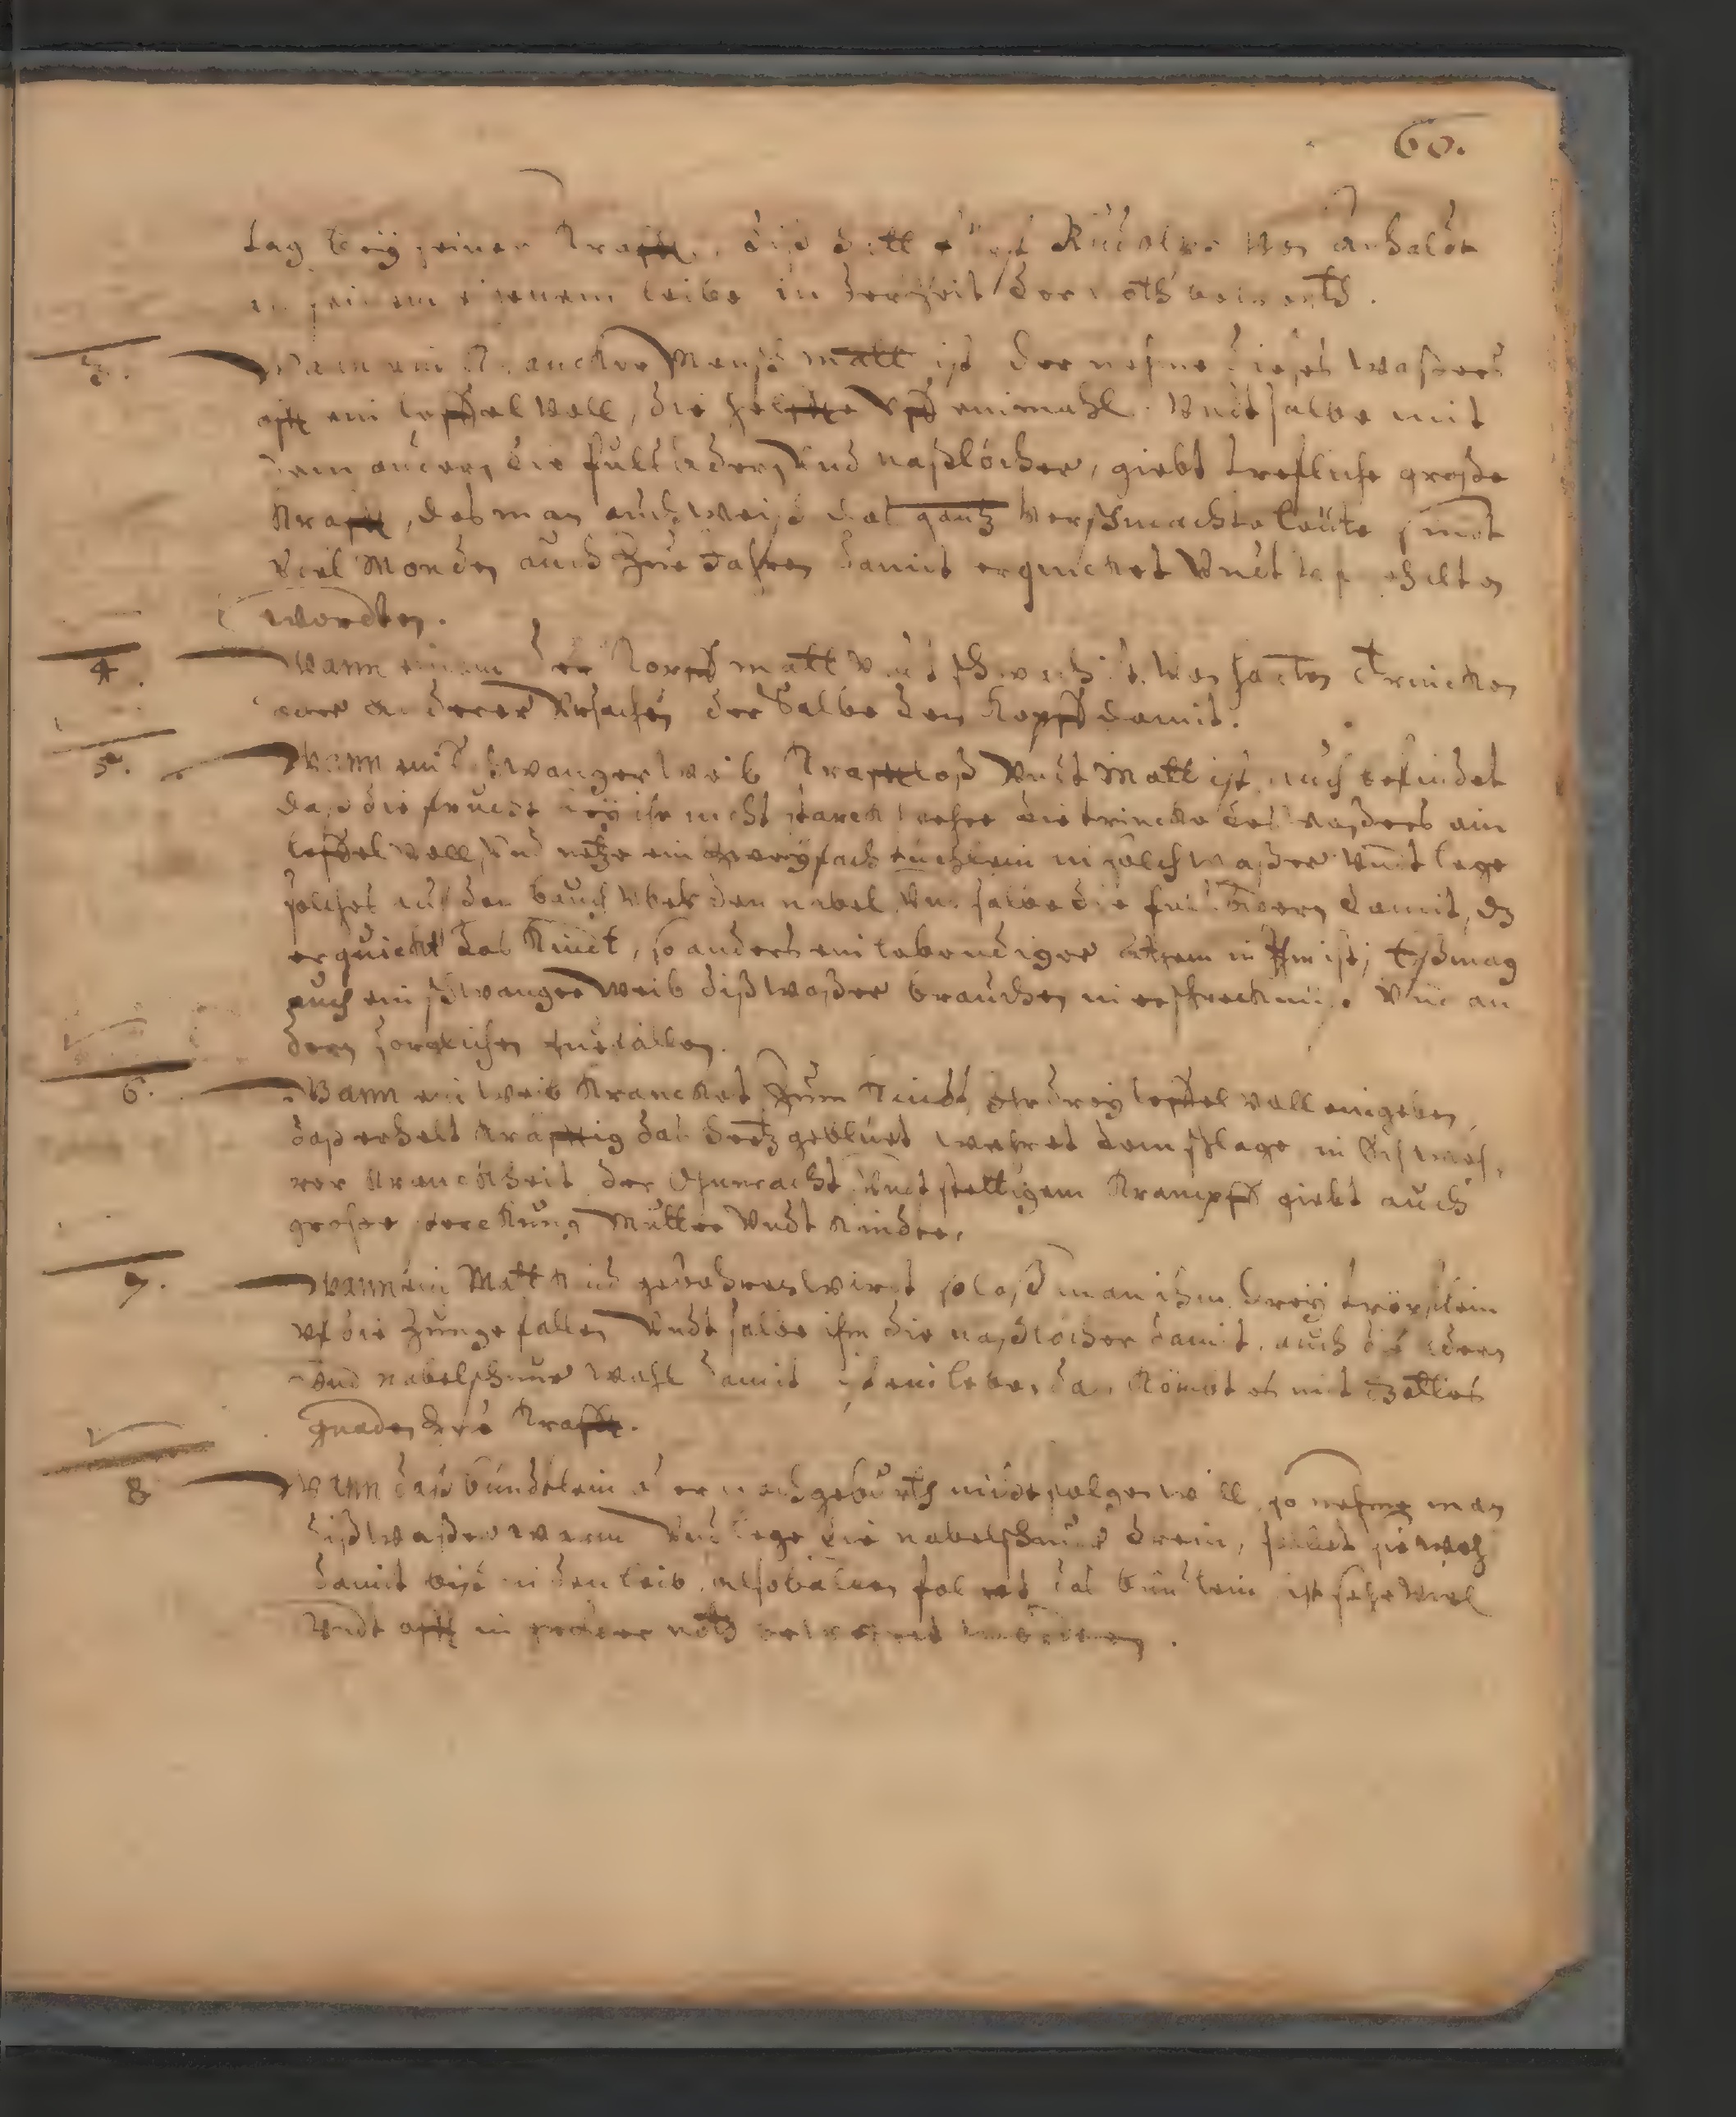 60.
tag beÿ seiner Krafft, diß hatt Fürst Rudolff von Anhaldt
an seinem eigenem leibe in der Zeit der noth bewerth.
3. Wann ein Krancker Mensch matt ist der nehme dieses waßers
offt ein leffel voll, die helffte vff einmahl. Vndt salbe mit
dem andern die Pulßadern Vnd naßlöcher, giebt trefliche große
Krafft, das man auch weiß das gantz verschmachte leüte sindt
viel Monden auch Zue Jahren damit erquicket Vndt erhalten
worden.
4. Wann einem der Kopff matt Vndt schwach ist, von harten Trincken
oder anderer Vrsachen der Salbe den Kopff damit.
5. Wann ein schwanger weib Krafftloß Vndt Matt ist, auch befindet
daß die frucht beÿ ihr nicht starck wehre die trincke des waßers ein
leffel voll, Vnd netze ein zweÿfach tüchlein in solch waßer Vndt lege
solches auf den bauch vber den nabel Vnd salbe die Pulßadern damit, dz
erquickt das Kindt, so anders ein lebendiger Athem in Ihm ist, Eß mag
auch ein schwanger Weib diß waßer brauchen in erschrecknuß Vnd an
dern sorglichen zuefällen.
6. Wann ein weib Krancket Zum Kindt, ihr dreÿ leffel voll eingeben,
daß erhelt Kräfftig das hertz geblüet wehret dem schlage in
rer Kranckheit der Ohnmacht Vndt Krampff giebt auch
große sterckung Mutter Vndt Kinder.
7. Wann ein Matt Kind gebohren wirdt so laß man ihm dreÿ tröpflein
vf die Zunge fallen Vndt salbe ihm die naßlöcher damit, auch die adern
Vnd nabelschnur wohl damit ist ein leben da, Kömbt es mit Gottes
gnaden Zue Krafft.
8. Wann daß bündelein der nachgeburth nicht folgen will, so nehme man
diß waßer warm Vnd lege die nabelschnur drein, salbet sie wohl
damit biß in den leib, alsobalden folget das bündlein, ist sehr viel
Vndt offt in großer noth bewehret worden.